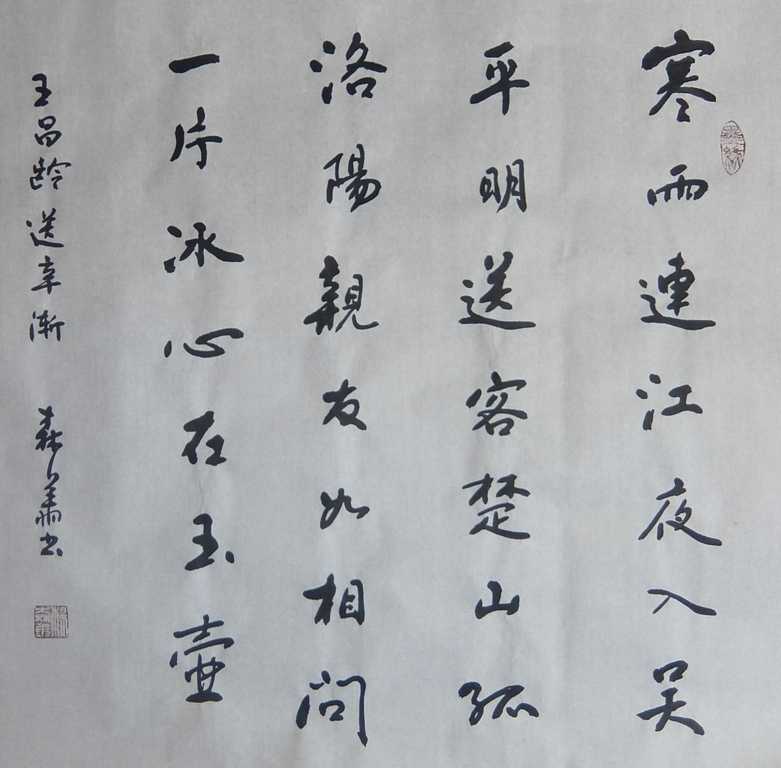 寒雨連江夜入吴
平明送客楚山孤
洛陽親友如相問
一片冰心在玉壺
王昌齡送辛漸 森